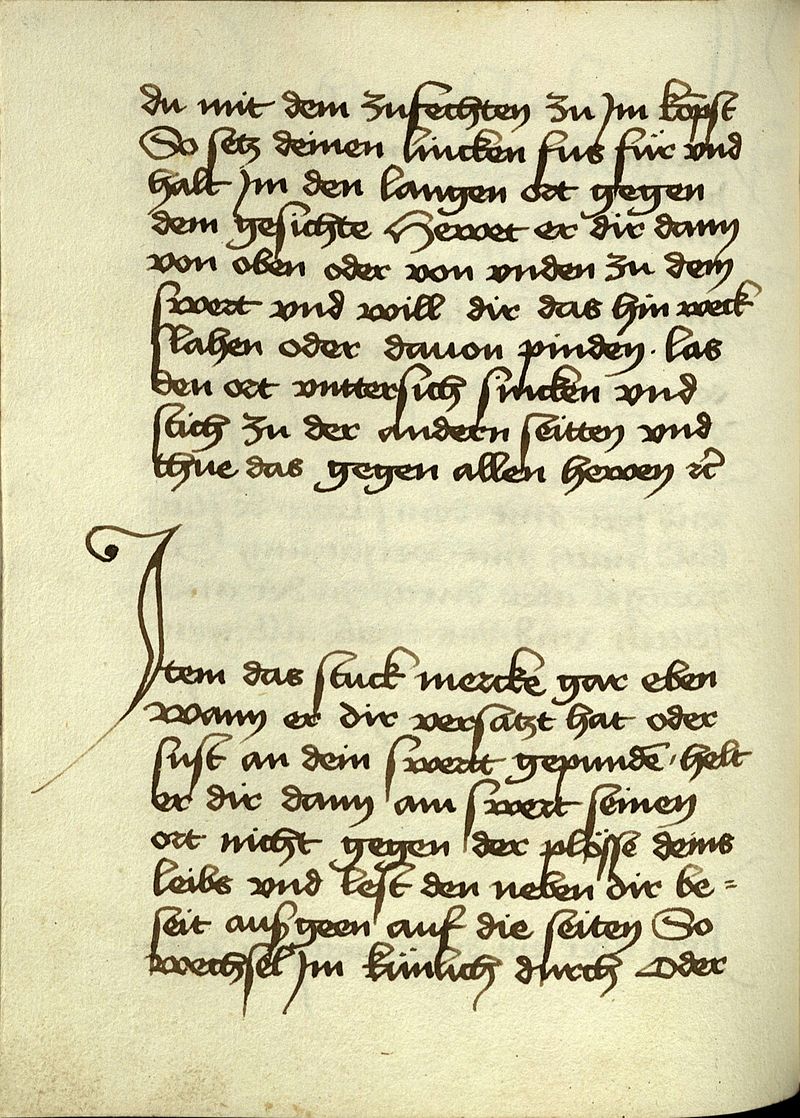 du mit dem zufechten zu Im kop̄st
So setz deinen lincken fus für vnd
halt Im den langen ort gegen
dem gesichte Hewet er dir dann
von oben oder von vnden zu dem
swert vnd will dir das hin weck
slahen oder dauon pinden · las
den ort vnttersich sincken vnd
stich zu der andern seitten vnd
thue das gegen allen hewen ꝛc̄
Item das stuck mercke gar eben
wann er dir versatzt hat oder
sust an dein swert gepundē · helt
er dir dann am swert seinen
ort nicht gegen der plösse deins
leibs vnd lest den neben dir be =
seit außgeen auf die seiten So
wechsel Im künlich durch Oder